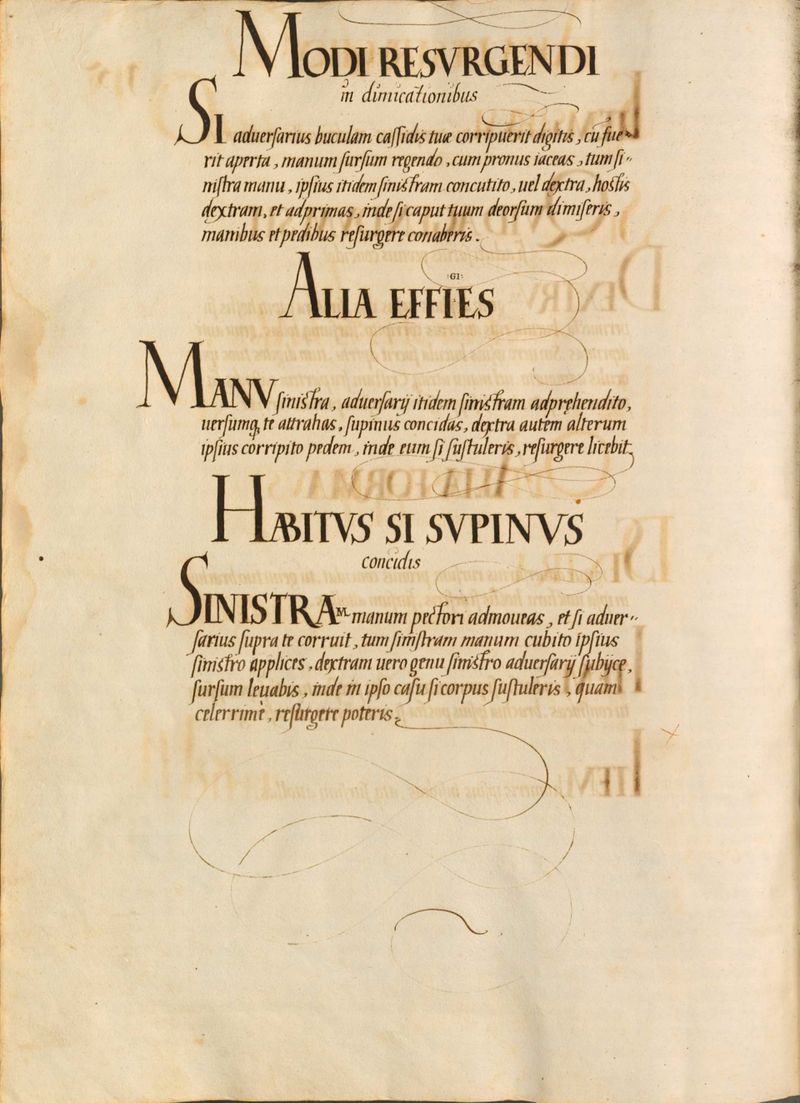 MODI RESVRGENDI
in dimicationibus
SI aduerſarius buculam caſſidis tuæ corripuerit digitis, cū fue-
rit aperta, manum ſurſum regendo, cum pronus iaceas, tum ſi-
niſtra manu, ipſius itidem ſiniſtram concutito, uel dextra, hoſtis
dextram, et adprimas, inde ſi caput tuum deorſum dimiſeris,
manibus et pedibus reſurgere conaberis.
·GI·
ALIA EFFIES
MANV ſiniſtra, aduerſarij itidem ſiniſtram adpręhendito,
uerſumq, te attrahas, ſupinus concidas, dextra autem alterum
ipſius corripito pedem, inde eum ſi ſuſtuleris, reſurgere licebit.
HABITVS SI SVPINVS
concidis
SINISTRAM manum pectori admoueas, et ſi aduer-
ſarius ſupra te corruit, tum ſiniſtram manum cubito ipſius
ſiniſtro applices, dextram uero genu ſiniſtro aduerſarij ſubijce,
ſurſum leuabis, inde in ipſo caſu ſi corpus ſuſtuleris, quam
celerrimè, reſurgere poteris.